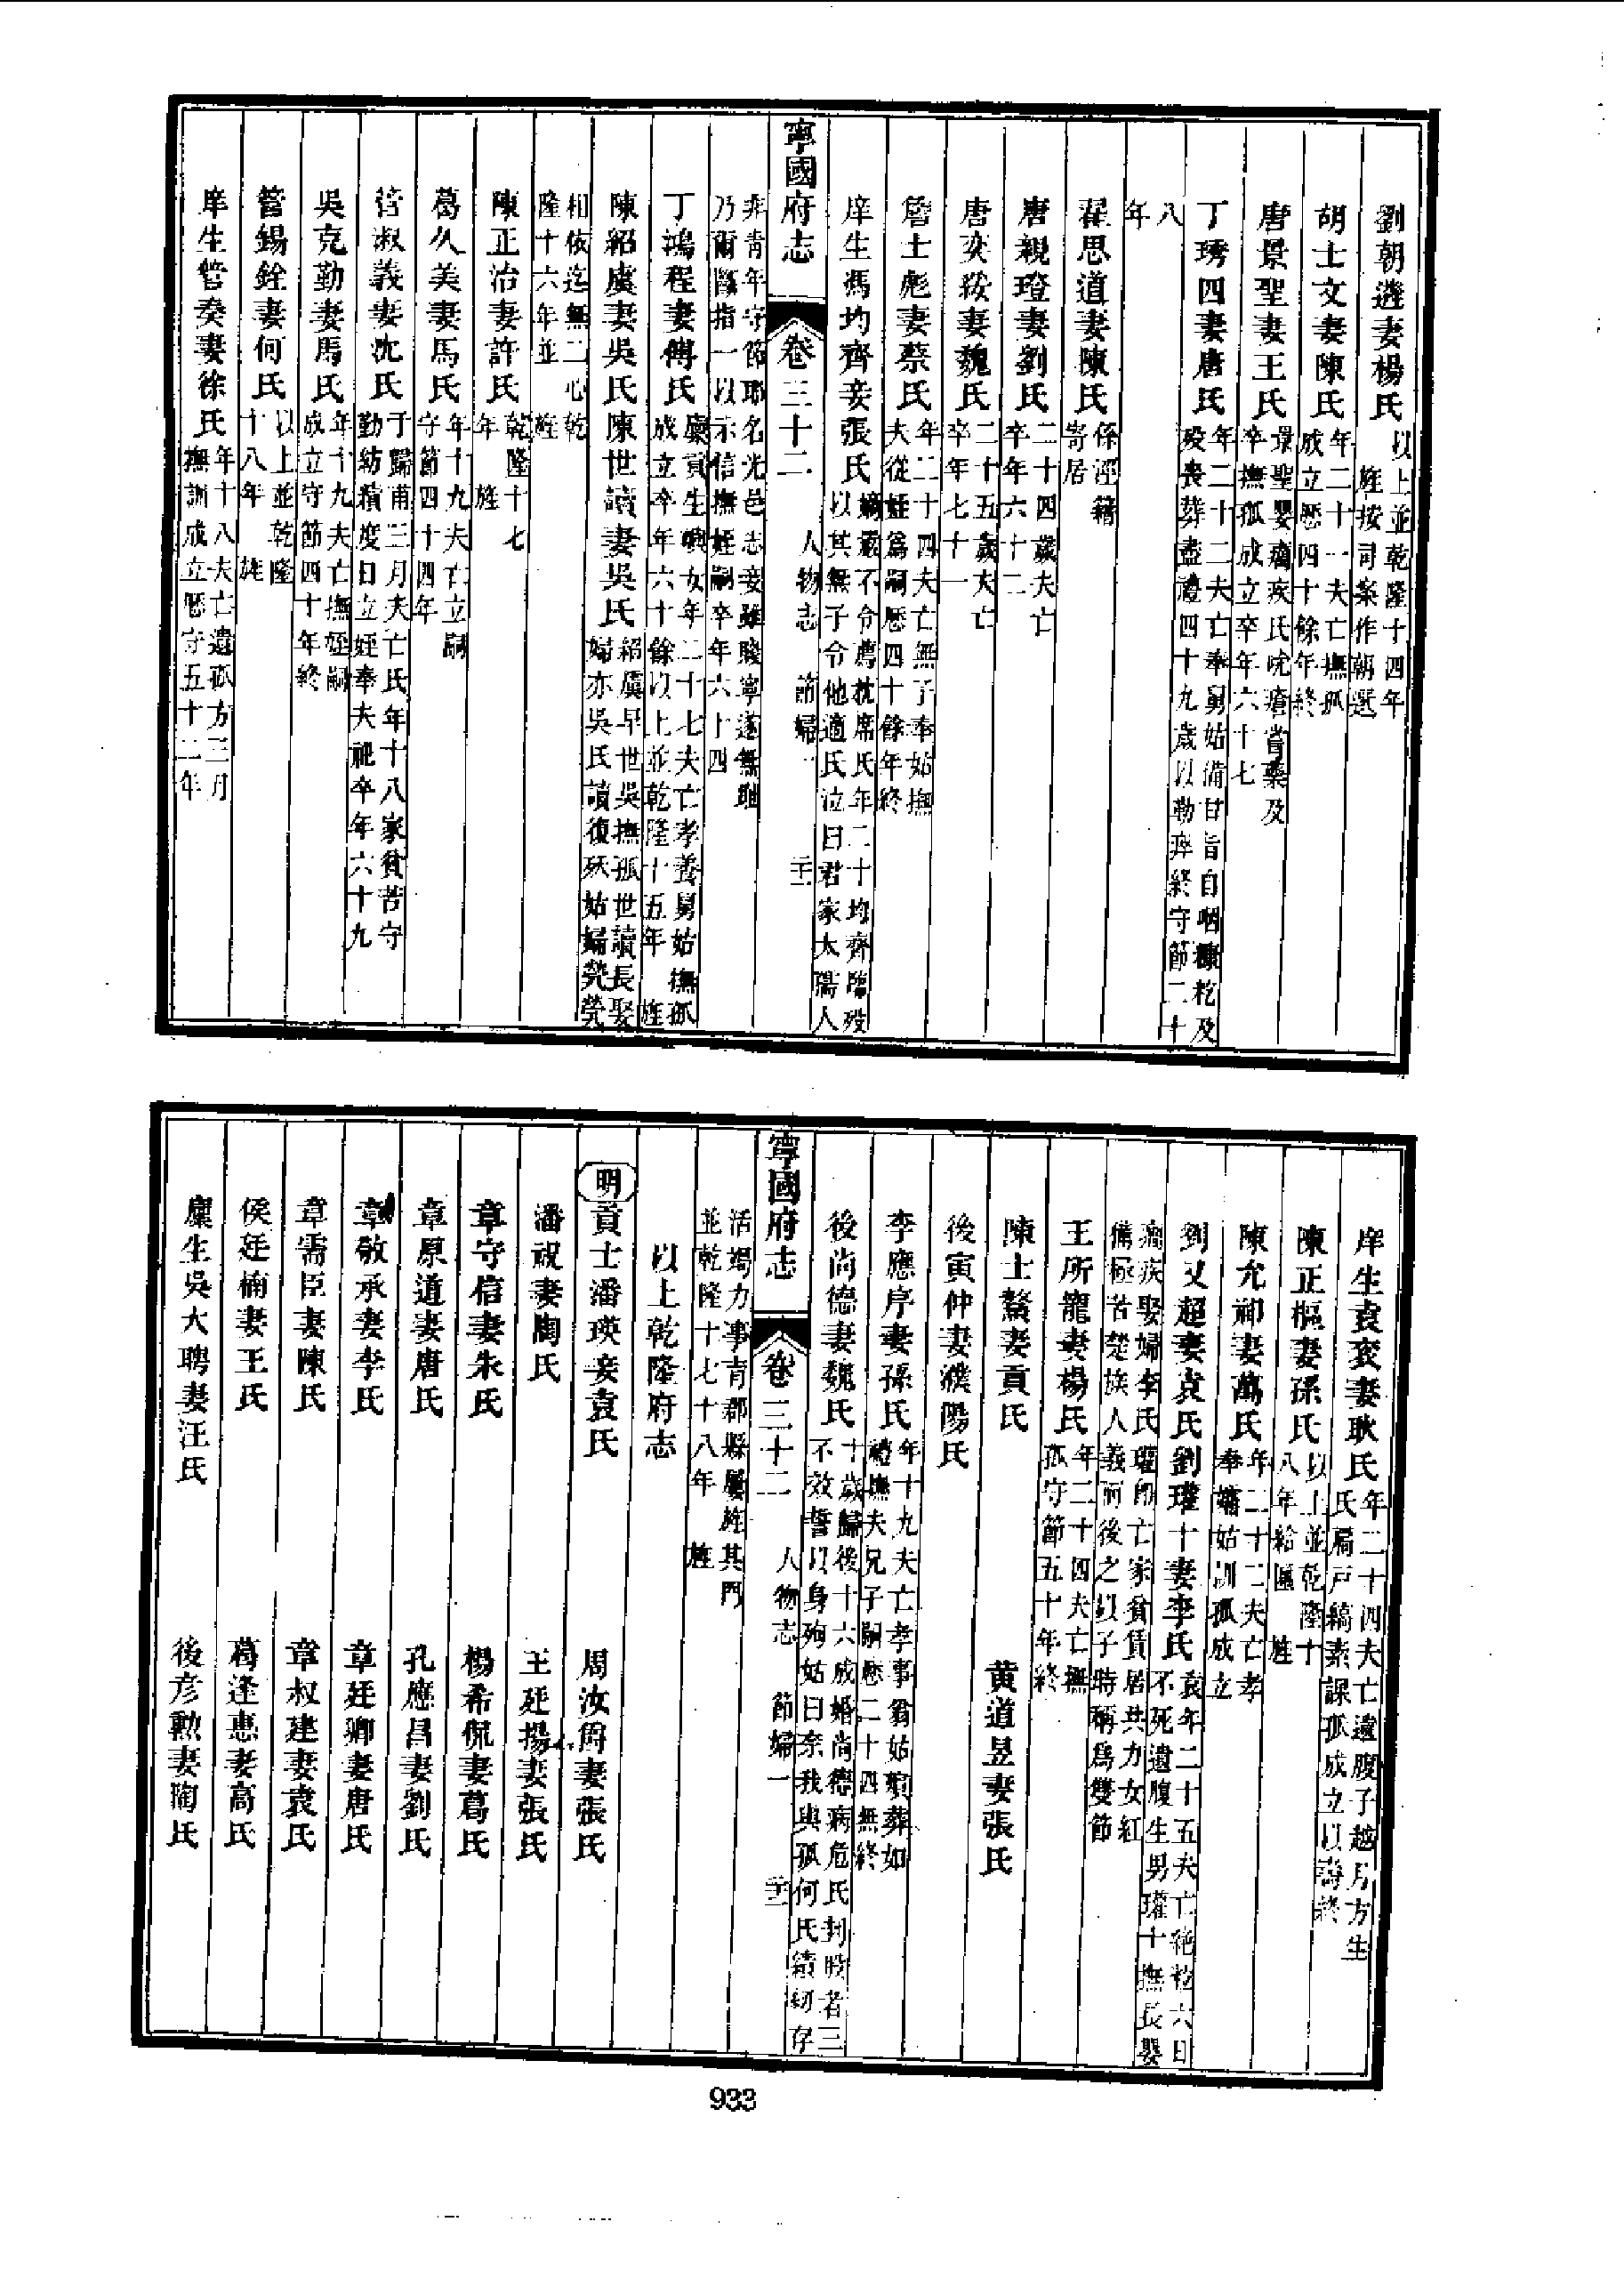 劉朝遴妻楊氏以上並乾隆十四年
旌按司案作朝選
胡士文妻陳氏年二十一夫亡撫孤
成立歷四十餘年終
唐景聖妻王氏景聖嬰痼疾氏吮瘡嘗藥及
卒撫孤成立卒年六十七
丁琇四妻唐氏年二十二夫亡奉舅姑備甘旨自咽糠籺及
歿喪葬盡禮四十九歲以勤瘁終守節二十
八
年
翟思道妻陳氏係涇籍
寄居
唐親璒妻劉氏二十四歲夫亡
卒年六十二
唐奕綏妻魏氏二十五歲夫亡
卒年七十一
詹士彪妻蔡氏年二十四夫亡無子奉姑撫
夫從姪爲嗣歷四十餘年終
庠生馮均齊妾張氏嫡嚴不令薦枕席氏年二十均齊臨歿
以其無子令他適氏泣曰君家太孺人
寧國府志 卷三十二 人物志 節婦一 二十一
非青年守節耶名光邑志妾雖賤寧遂無恥
乃爾斷指一以示信撫姪嗣卒年六十四
丁鴻程妻傅氏廩貢生 女年二十七夫亡孝養舅姑撫孤
成立卒年六十餘以上並乾隆十五年 旌
陳紹虞妻吳氏陳世讀妻吳氏紹虞早世吳撫孤世讀長娶
婦亦吳氏讀復殀姑婦煢煢
相依迄無二心乾
隆十六年並 旌
陳正治妻許氏乾隆十七
年 旌
葛久美妻馬氏年十九夫亡立嗣
守節四十四年
管淑義妻沈氏于歸甫三月夫亡氏年十八家貧苦守
勤紡績度日立姪奉夫祀卒年六十九
吳克勤妻馬氏年十九夫亡撫姪嗣
成立守節四十年終
管錫銓妻何氏以上並乾隆
十八年 旌
庠生管奏妻徐氏年十八夫亡遺孤方三月
撫訓成立歷守五十二年
庠生袁袞妻耿氏年二十四夫亡遺腹子越月方生
氏扃戸縞素課孤成立以壽終
陳正樞妻孫氏以上並乾隆十
八年給匾 旌
陳允御妻萬氏年二十二夫亡孝
奉孀姑訓孤成立
劉文超妻袁氏劉瓘十妻李氏袁年二十五夫亡絶粒六日
不死遺腹生男瓘十撫長嬰
痼疾娶婦李氏瓘卽亡家貧賃居共力女紅
備極苦楚族人義而後之以子時稱爲雙節
王所寵妻楊氏年二十四夫亡撫
孤守節五十年終
陳士鰲妻貢氏 黄道昱妻張氏
後寅仲妻濮陽氏
李應序妻孫氏年十九夫亡孝事翁姑殯葬如
禮撫夫兄子嗣歷二十四無終
後尚德妻魏氏十歲歸後十六成婚尚德病危氏刲股者三
不效誓以身殉姑曰奈我與孤何氏績紉存
寧國府志 卷三十二 人物志 節婦一 二十二
活竭力事育郡縣屢旌其門
並乾隆十七十八年 旌
以上乾隆府志
明貢士潘瑛妾袁氏 周汝爵妻張氏
潘祝妻陶氏 王廷揚妻張氏
章守信妻朱氏 楊希侃妻葛氏
章原道妻唐氏 孔應昌妻劉氏
章敬承妻李氏 章廷卿妻唐氏
章需臣妻陳氏 章叔建妻袁氏
侯廷楠妻王氏 葛逢惠妻高氏
廩生吳大聘妻汪氏 後彦勲妻陶氏
933